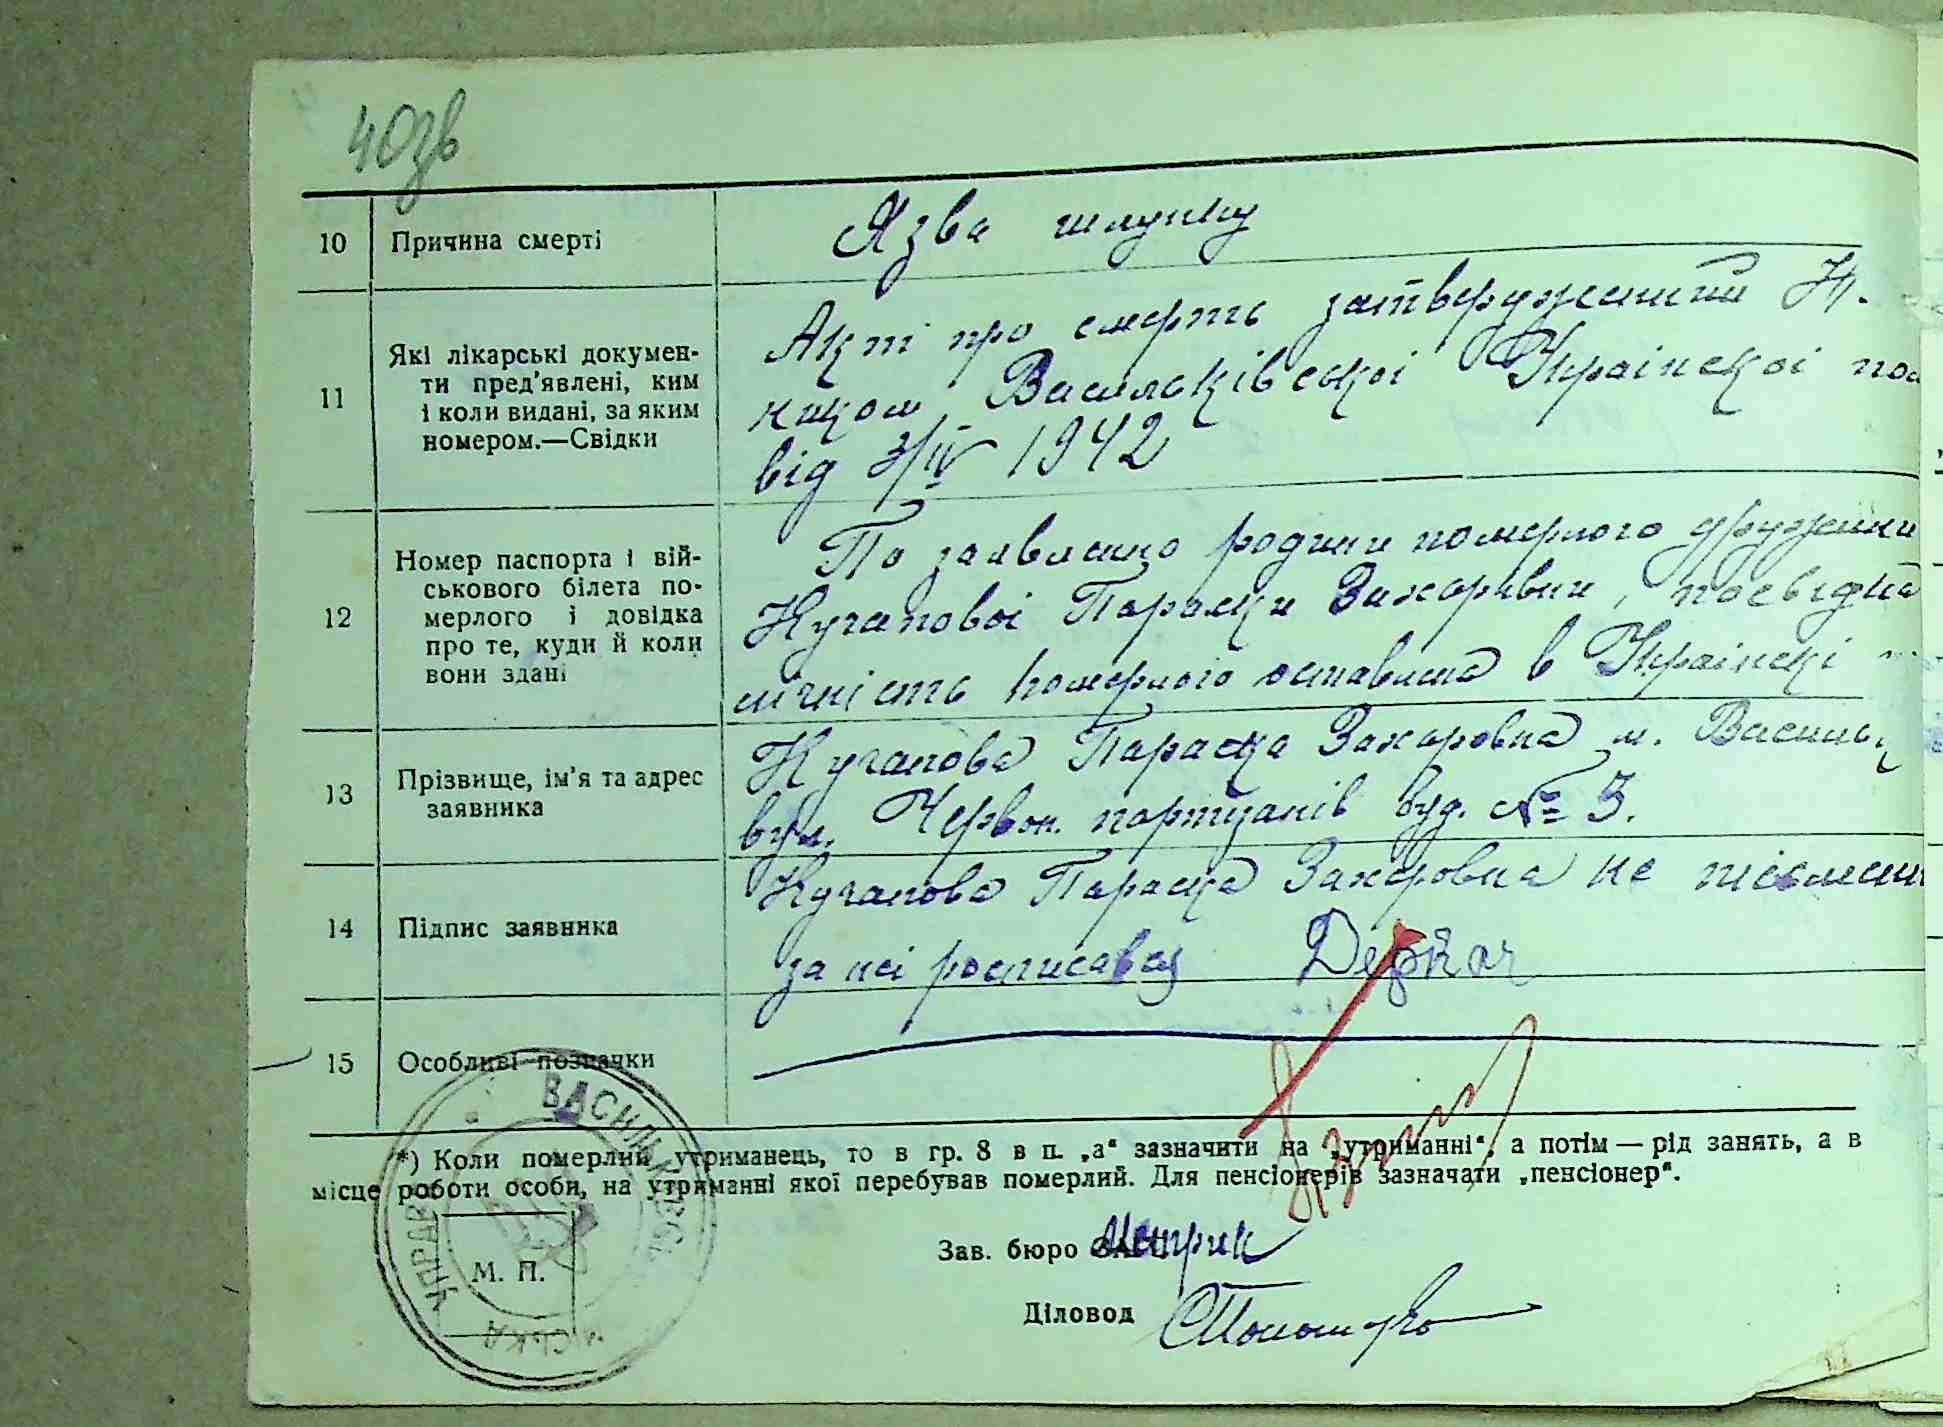 40зв
10 Причина смерті Язва шлунку
11 Які лікарські докумен-
ти пред'явлені, ким
і коли видані, за яким
номером.—Свідки
Акт про смерть затверджений Н.-
ником Васильківської Української пол
від 3/IV 1942
12 Номер паспорта і вій-
ськового білета по-
мерлого і довідка
про те, куди й коли
вони здані
По заявлено родини померлого дружини
Кучапової Параски Захаровни, посвідка
лічність померлого оставлена в Українскі
13 Прізвище, ім'я та адрес
заявника
Кучапова Параска Захаровна м. Васильк
вул. Червон. партизанів буд. № 3.
14 Підпис заявника
Кучапова Параска Захаровна не письмени
за неі росписався Деркач
15 Особливі позначки
*) Коли померлий утриманець, то в гр. 8 в п. „а“ зазначити на „утриманні“, а потім — рід занять, а в
місце роботи особи, на утриманні якої перебував померлий. Для пенсіонерів зазначати „пенсіонер“.
ВАСИЛЬКІВСЬКА МІСЬКА УПРАВА
М. П.
Зав. бюро Метрик
Діловод